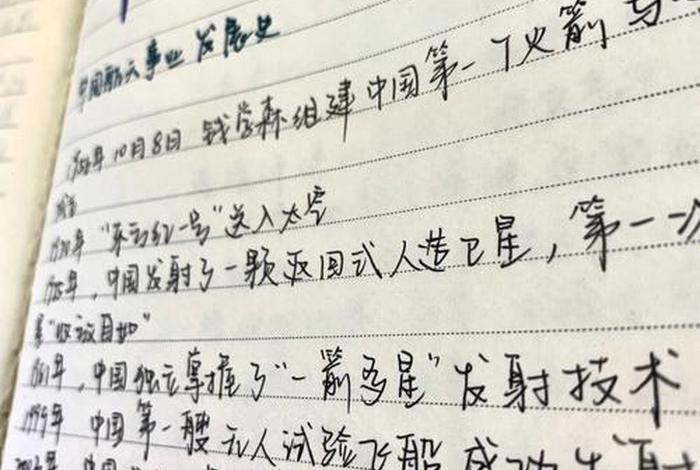 中国航天事业发展史
1956年10月8日 钱学森组建中国第一个火箭导
1970年“东方红一号”送入太空
1975年,中国发射了一颗返回式人造卫星,第一次
“收放自如”
1981年,中国独立掌握了“一箭多星”发射技术
1999年 中国第一艘无人试验飞船成功发射
年 中国